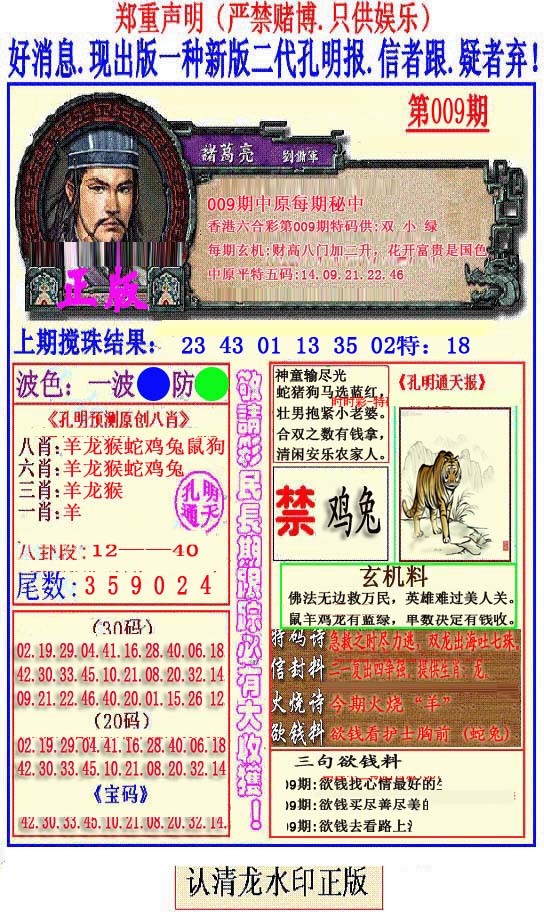 郑重声明（严禁赌博.只供娱乐）
好消息.现出版一种新版二代孔明报.信者跟.疑者弃!
第009期
諸葛亮 劉備軍
009期中原每期秘中
香港六合彩第009期特码供:双 小 绿
每期玄机:财高八门加二升，花开富贵是国色
中原平特五码:14.09.21.22.46
正版
上期搅珠结果： 23 43 01 13 35 02特：18
波色：一波 防
《孔明预测原创八肖》
八肖:羊龙猴蛇鸡兔鼠狗
六肖:羊龙猴蛇鸡兔
三肖:羊龙猴
一肖:羊
孔明
通天
八卦段:12——40
尾数:359024
(30码)
02.19.29.04.41.16.28.40.06.18
42.30.33.45.10.21.08.20.32.14
09.21.22.46.40.20.01.15.26 12
(20码)
02.19.29.04.41.16.28.40.06.18
42.30.33.45.10.21.08.20.32.14
《宝码》
42.30.33.45.10.21.08.20.32.14.
敬請彩民長期跟踪必有大收獲！
神童输尽光
蛇猪狗马选蓝红，
壮男抱紧小老婆。
合双之数有钱拿，
清闲安乐农家人。
《孔明通天报》
禁 鸡兔
玄机料
佛法无边救万民，英雄难过美人关。
鼠羊鸡龙有蓝绿，单数决定有钱收。
特码诗 急救之时尽力逃，双龙出海吐七珠.
信封料 二一复出四争强.提供生肖：龙.
火烧诗 今期火烧“羊”
欲钱料 欲钱看护士胸前（蛇兔）
三句欲钱料
09期:欲钱找心情最好的
09期:欲钱买尽善尽美的
09期:欲钱去看路上
认清龙水印正版